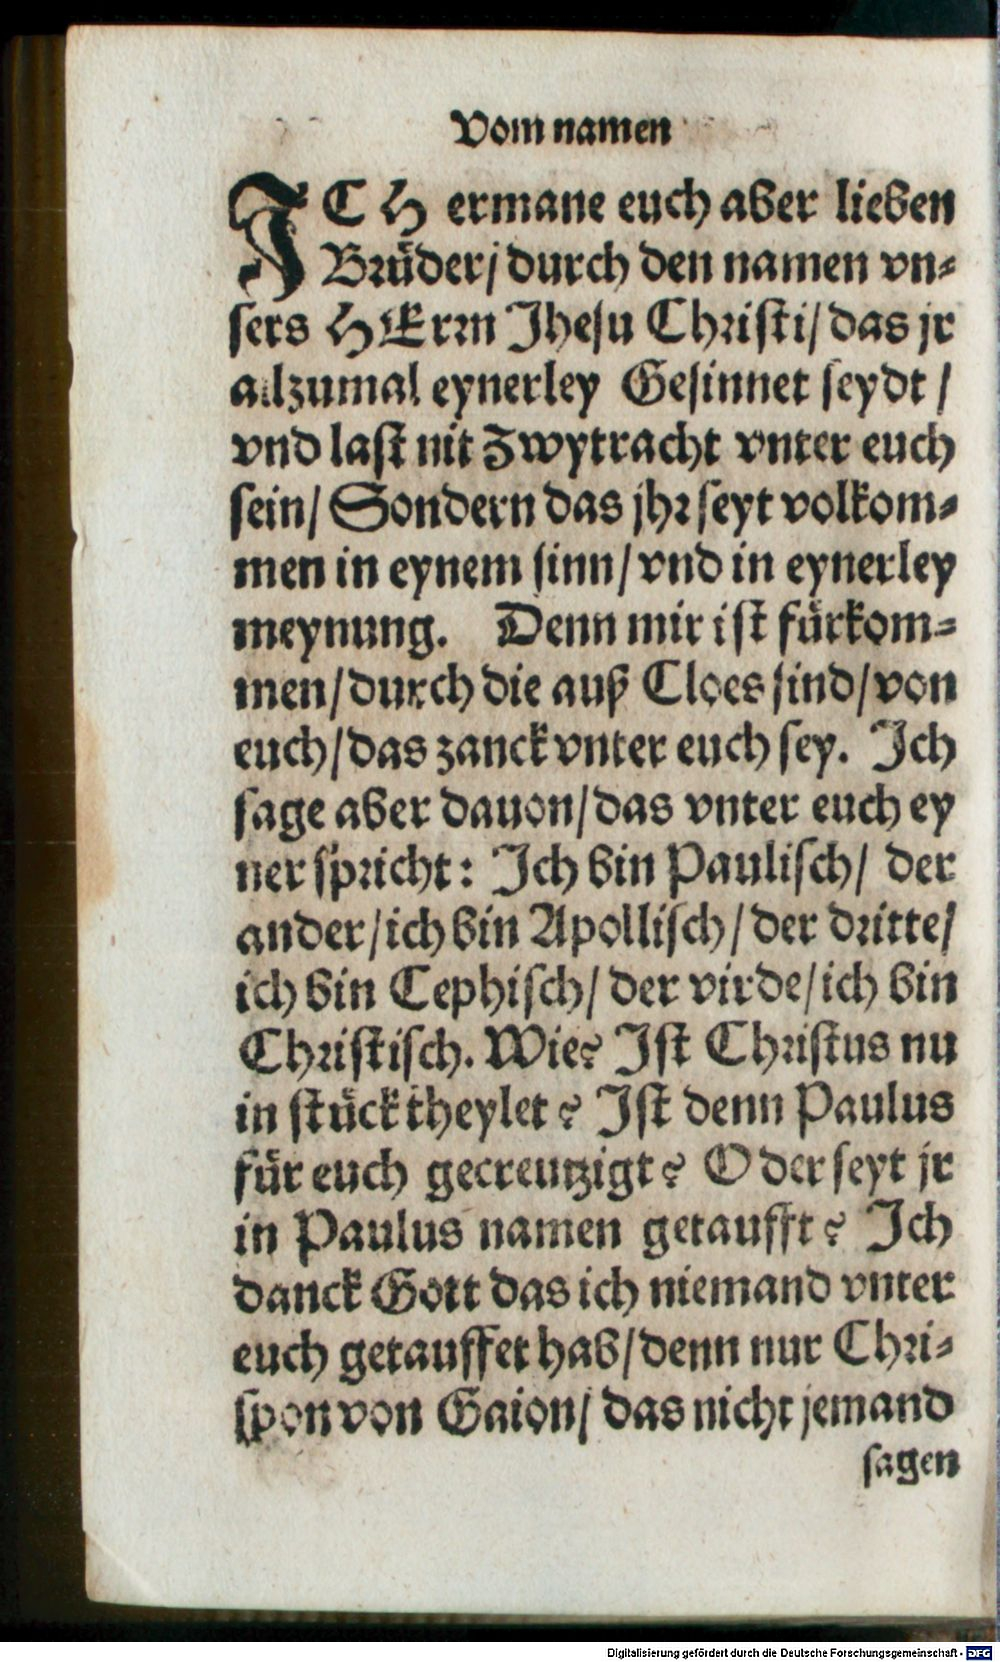 Vom namen
ICH ermane euch aber lieben
Brüder/ durch den namen vn⸗
sers HErrn Jhesu Christi/ das jr
allzumal eynerley Gesinnet seydt /
vnd last nit Zwytracht vnter euch
sein/ Sondern das jhr seyt volkom⸗
men in eynem sinn/ vnd in eynerley
meynung. Denn mir ist fürkom⸗
men/ durch die auß Cloes sind/ von
euch/ das zanck vnter euch sey. Ich
sage aber dauon/ das vnter euch ey
ner spricht: Ich bin Paulisch/ der
ander/ ich bin Apollisch/ der dritte/
ich bin Cephisch/ der virde/ ich bin
Christisch. Wie? Ist Christus nu
in stück theylet? Ist denn Paulus
für euch gecreutzigt? Oder seyt jr
in Paulus namen getaufft? Ich
danck Gott das ich niemand vnter
euch getauffet hab/ denn nur Chri⸗
spon von Gaion/ das nicht jemand
sagen
Digitalisierung gefördert durch die Deutsche Forschungsgemeinschaft - DFG